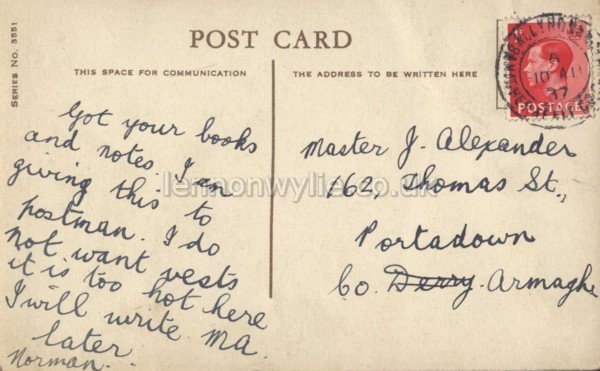 Series No. 3551
POST CARD
THIS SPACE FOR COMMUNICATION
THE ADDRESS TO BE WRITTEN HERE
POSTAGE
Got your books
and notes. I am
giving this to
postman. I do
not want vests
it is too hot here
I will write Ma.
later.
Norman.
Master J. Alexander
162, Thomas St.,
Portadown
Co. Derry. Armagh
lennonwylie.co.uk